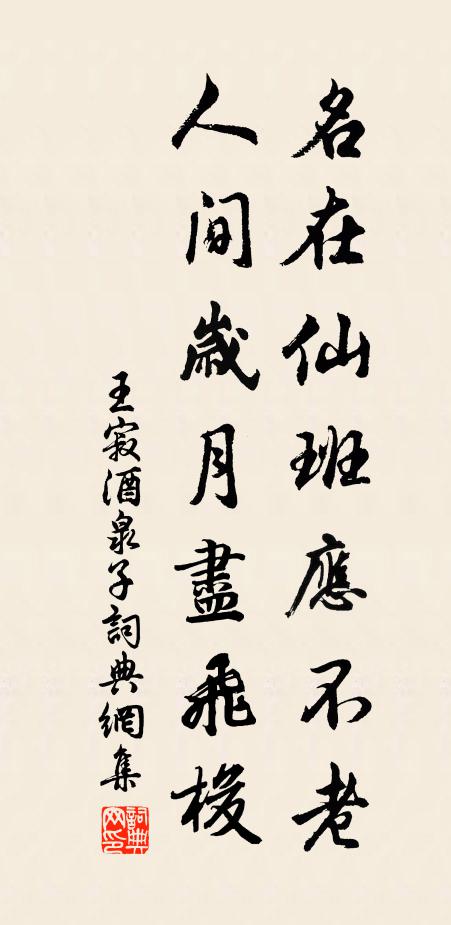 名在仙班應不老
人間歲月盡飛梭
王寂酒泉子詞典網集
詞典網印